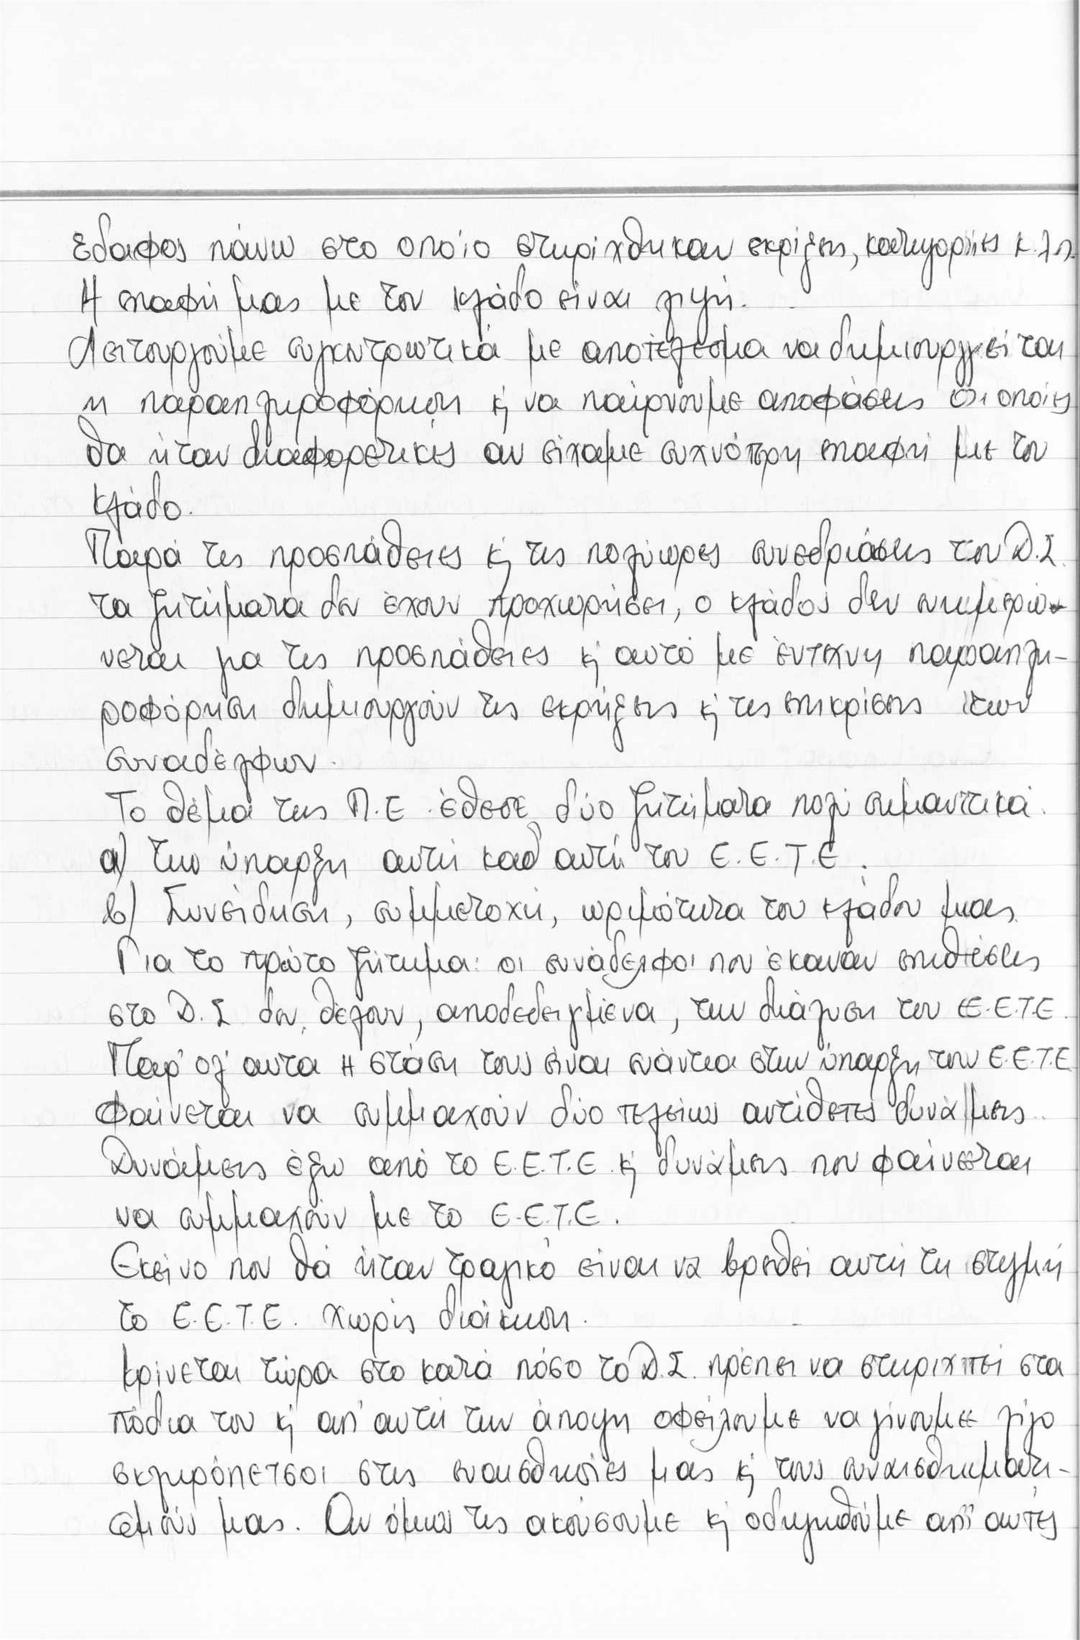 έδαφος πάνω στο οποίο στηρίχθηκαν εκρίξεις, κατηγορίες κ.λπ.
Η επαφή μας με τον κλάδο είναι λιγή.
Λειτουργούμε συγκεντρωτικά με αποτέλεσμα να δημιουργείται
η παραπληροφόρηση κ' να παίρνουμε αποφάσεις οι οποίες
θα ήταν διαφορετικές αν είχαμε συχνότερη επαφή με τον
κλάδο.
Παρά τις προσπάθειες κ' τις πολύωρες συνεδριάσεις του Δ.Σ.
τα ζητήματα δεν έχουν προχωρήσει, ο κλάδος δεν ενημερώ-
νεται για τις προσπάθειες κ' αυτό με έντεχνη παραπλη-
ροφόρηση δημιουργούν τις εκρήξεις κ' τις επικρίσεις των
συναδέλφων.
Το θέμα της Π.Ε έθεσε δύο ζητήματα πολύ σημαντικά.
α) την ύπαρξη αυτή καθ' αυτή του Ε.Ε.Τ.Ε.
β) Συνείδηση, συμμετοχή, ωριμότητα του κλάδου μας.
Για το πρώτο ζήτημα: οι συνάδελφοι που έκαναν επιθέσεις
στο Δ.Σ δεν θέλουν, αποδεδειγμένα, την διάλυση του Ε.Ε.Τ.Ε.
Παρ' ολ' αυτα η στάση τους είναι ενάντια στην ύπαρξη του Ε.Ε.Τ.Ε
Φαίνεται να συμμαχούν δύο τελείως αντίθετες δυνάμεις.
Δυνάμεις έξω από το Ε.Ε.Τ.Ε κ' δυνάμεις που φαίνεται
να συμμαχούν με το Ε.Ε.Τ.Ε.
Εκείνο που θα ήταν τραγικό είναι να βρεθεί αυτή τη στιγμή
το Ε.Ε.Τ.Ε. χωρίς διοίκηση.
Κρίνεται τώρα στο κατά πόσο το Δ.Σ. πρέπει να στηριχτεί στα
πόδια του κ' απ' αυτή την άποψη οφείλουμε να γίνουμε λίγο
σκληρόπετσοι στις ευαισθησίες μας κ' τους συναισθηματι-
σμούς μας. Αν όμως τις ακούσουμε κ' οδηγηθούμε απ' αυτές